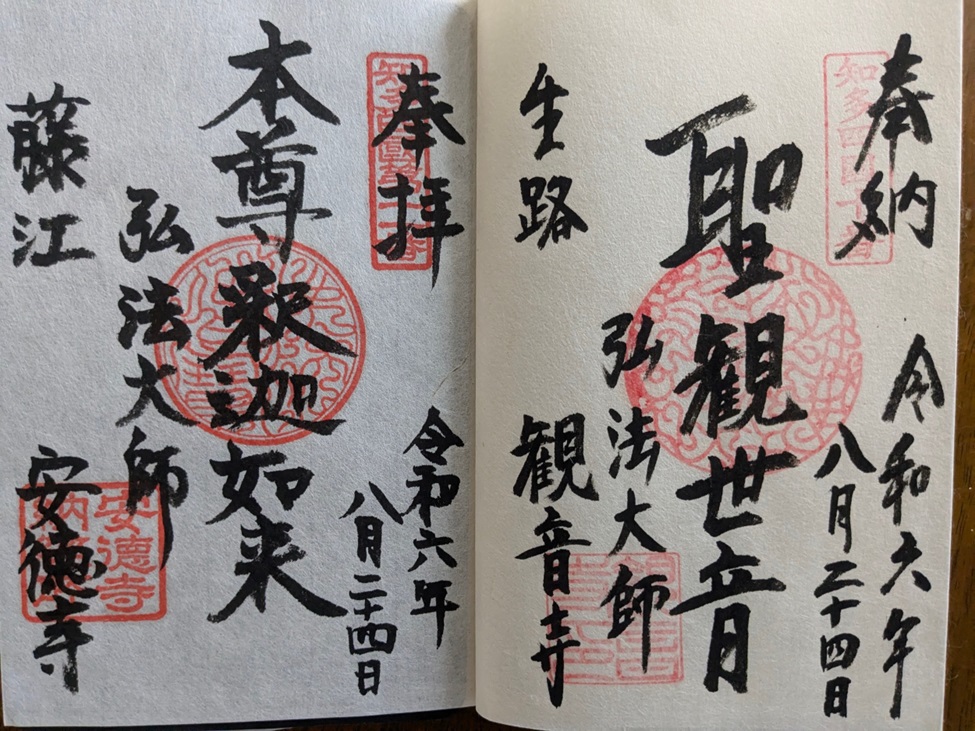 奉納
知多四国十番
令和六年
八月二十四日
聖観世音
弘法大師
生路 観音寺
奉拝
令和六年
八月二十四日
本尊釈迦如来
弘法大師
藤江 安徳寺
安徳寺